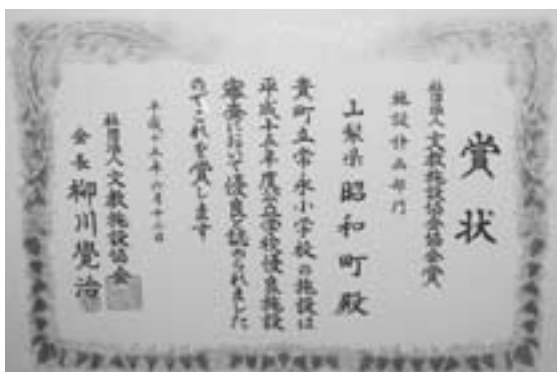 賞状
社団法人文教施設協会協会賞
施設計画部門
山梨県昭和町殿
貴町立常永小学校の施設は
平成十五年度公立学校優良施設
審査において優良と認められました
のでこれを賞します
平成十五年六月十二日
社団法人文教施設協会
会長柳川覺治